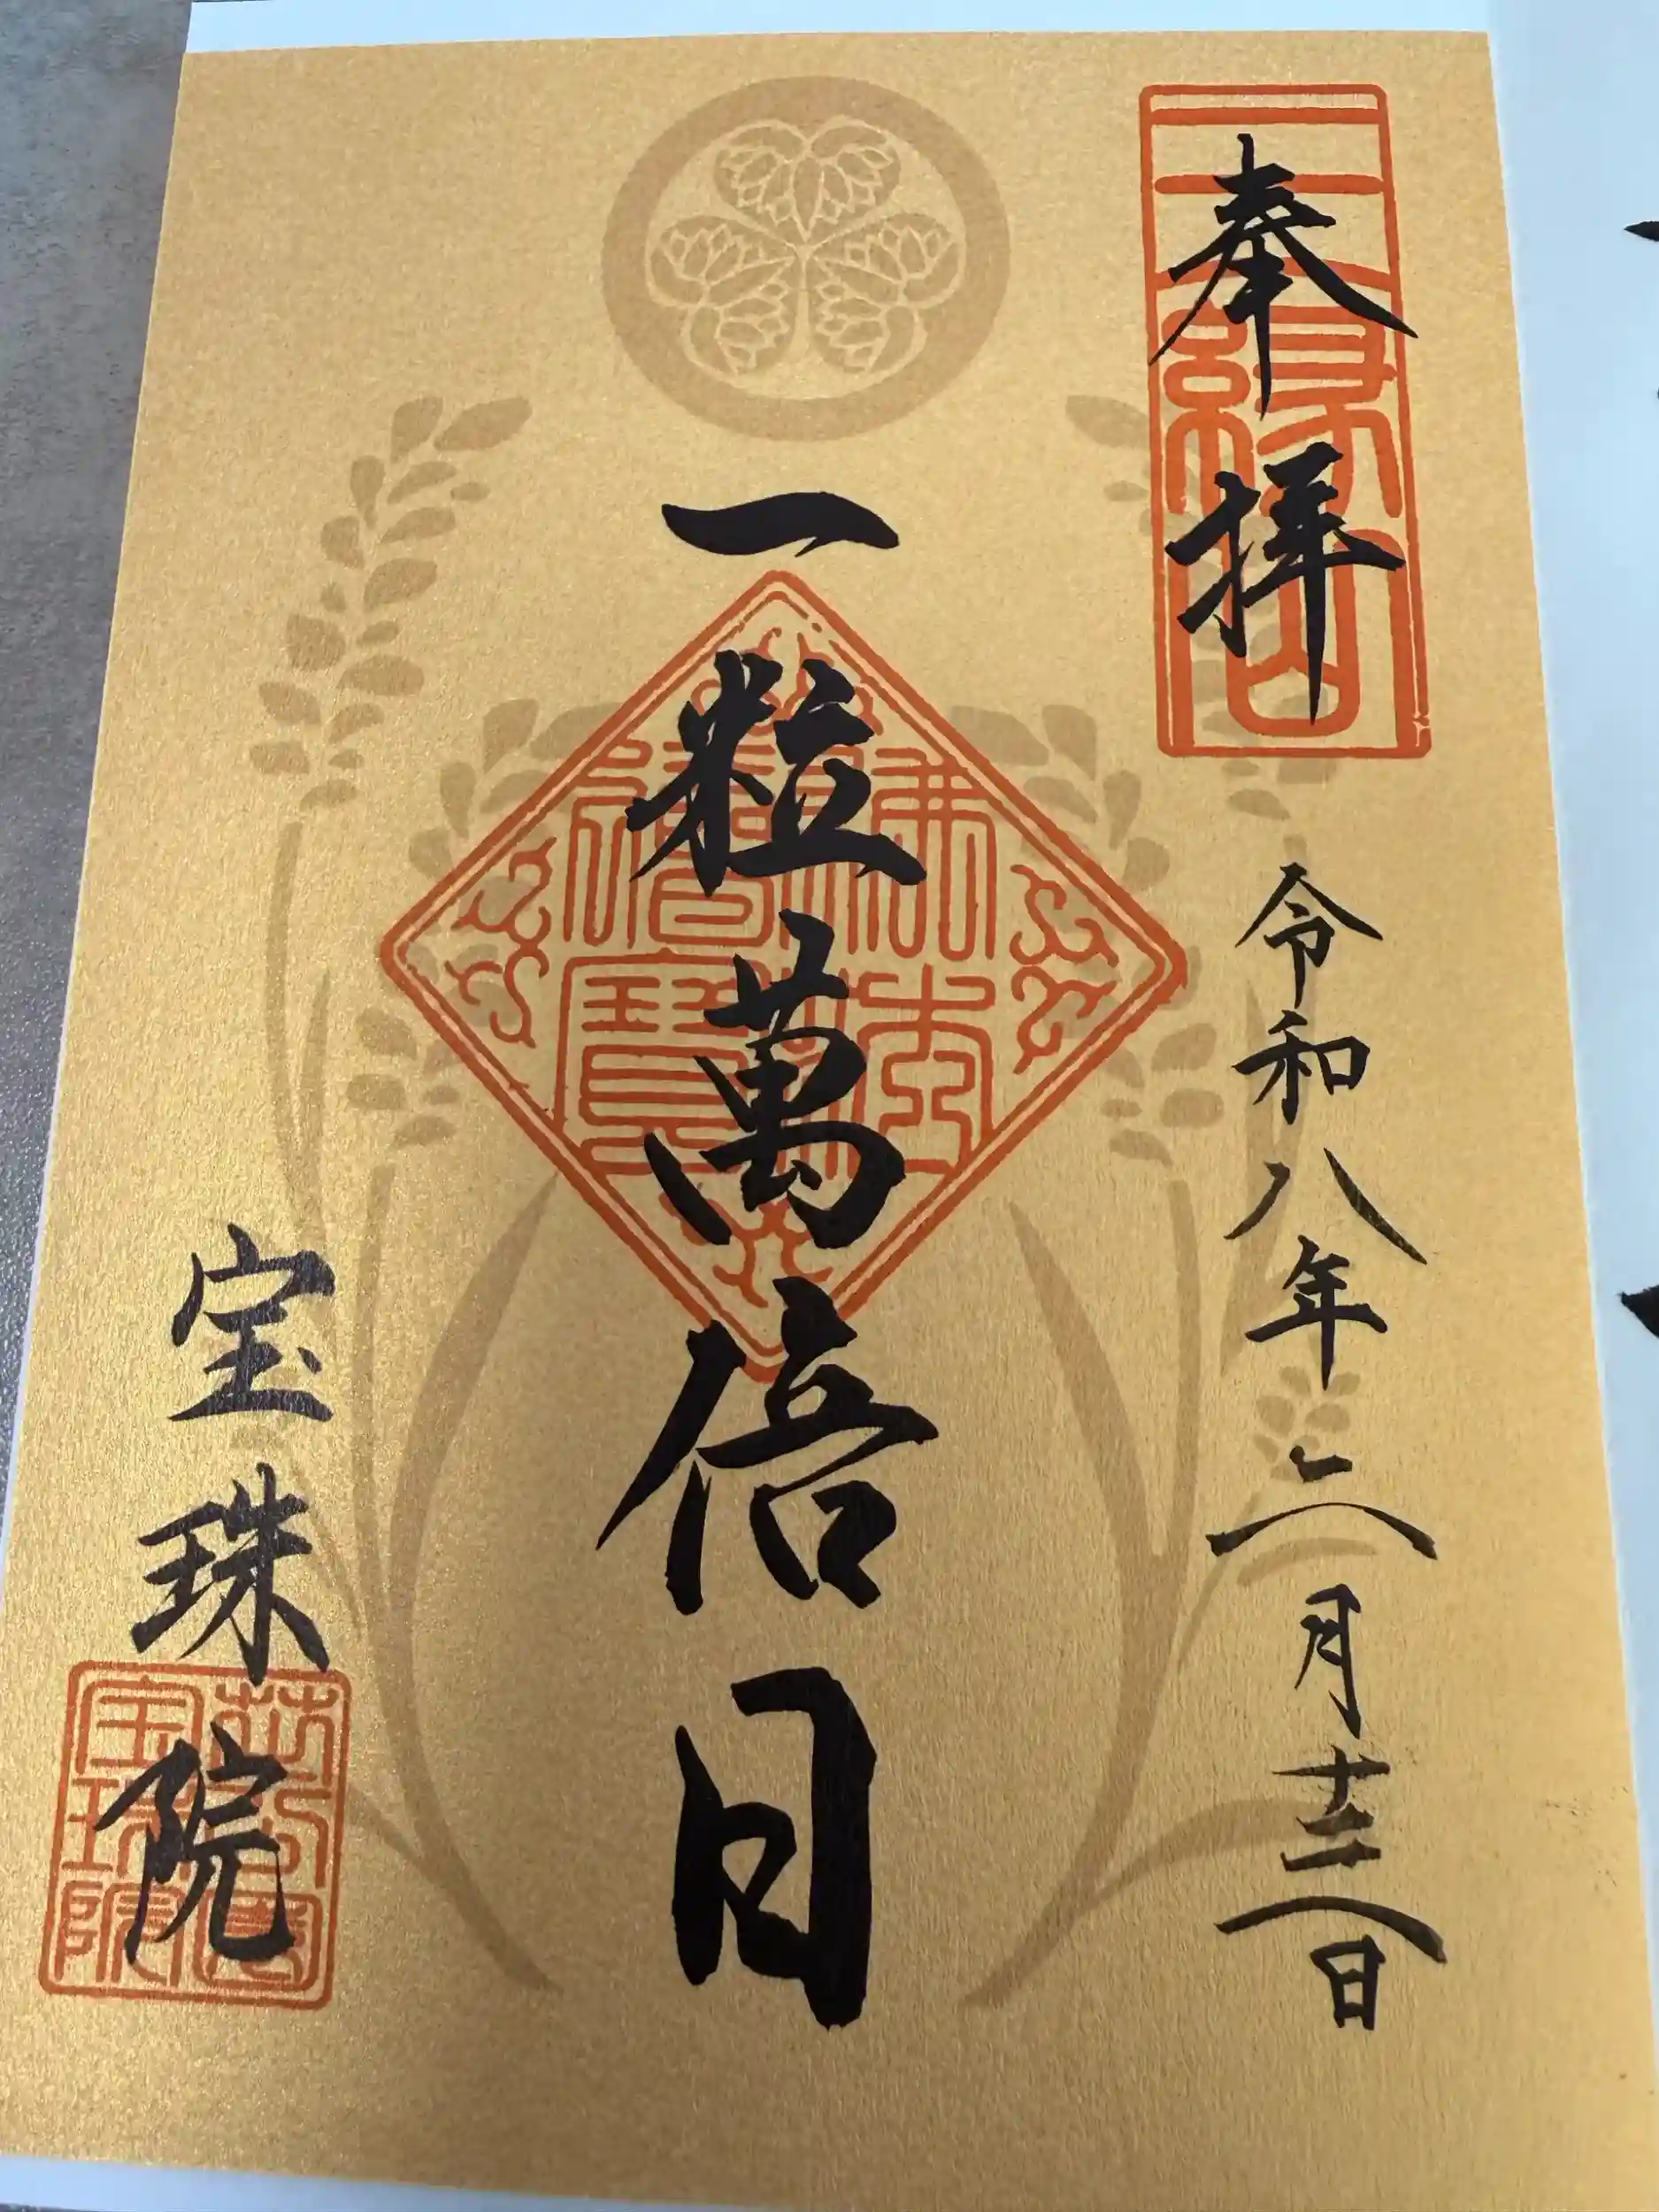 奉拝
令和八年二月十三日
一粒萬倍日
宝珠院
三縁山